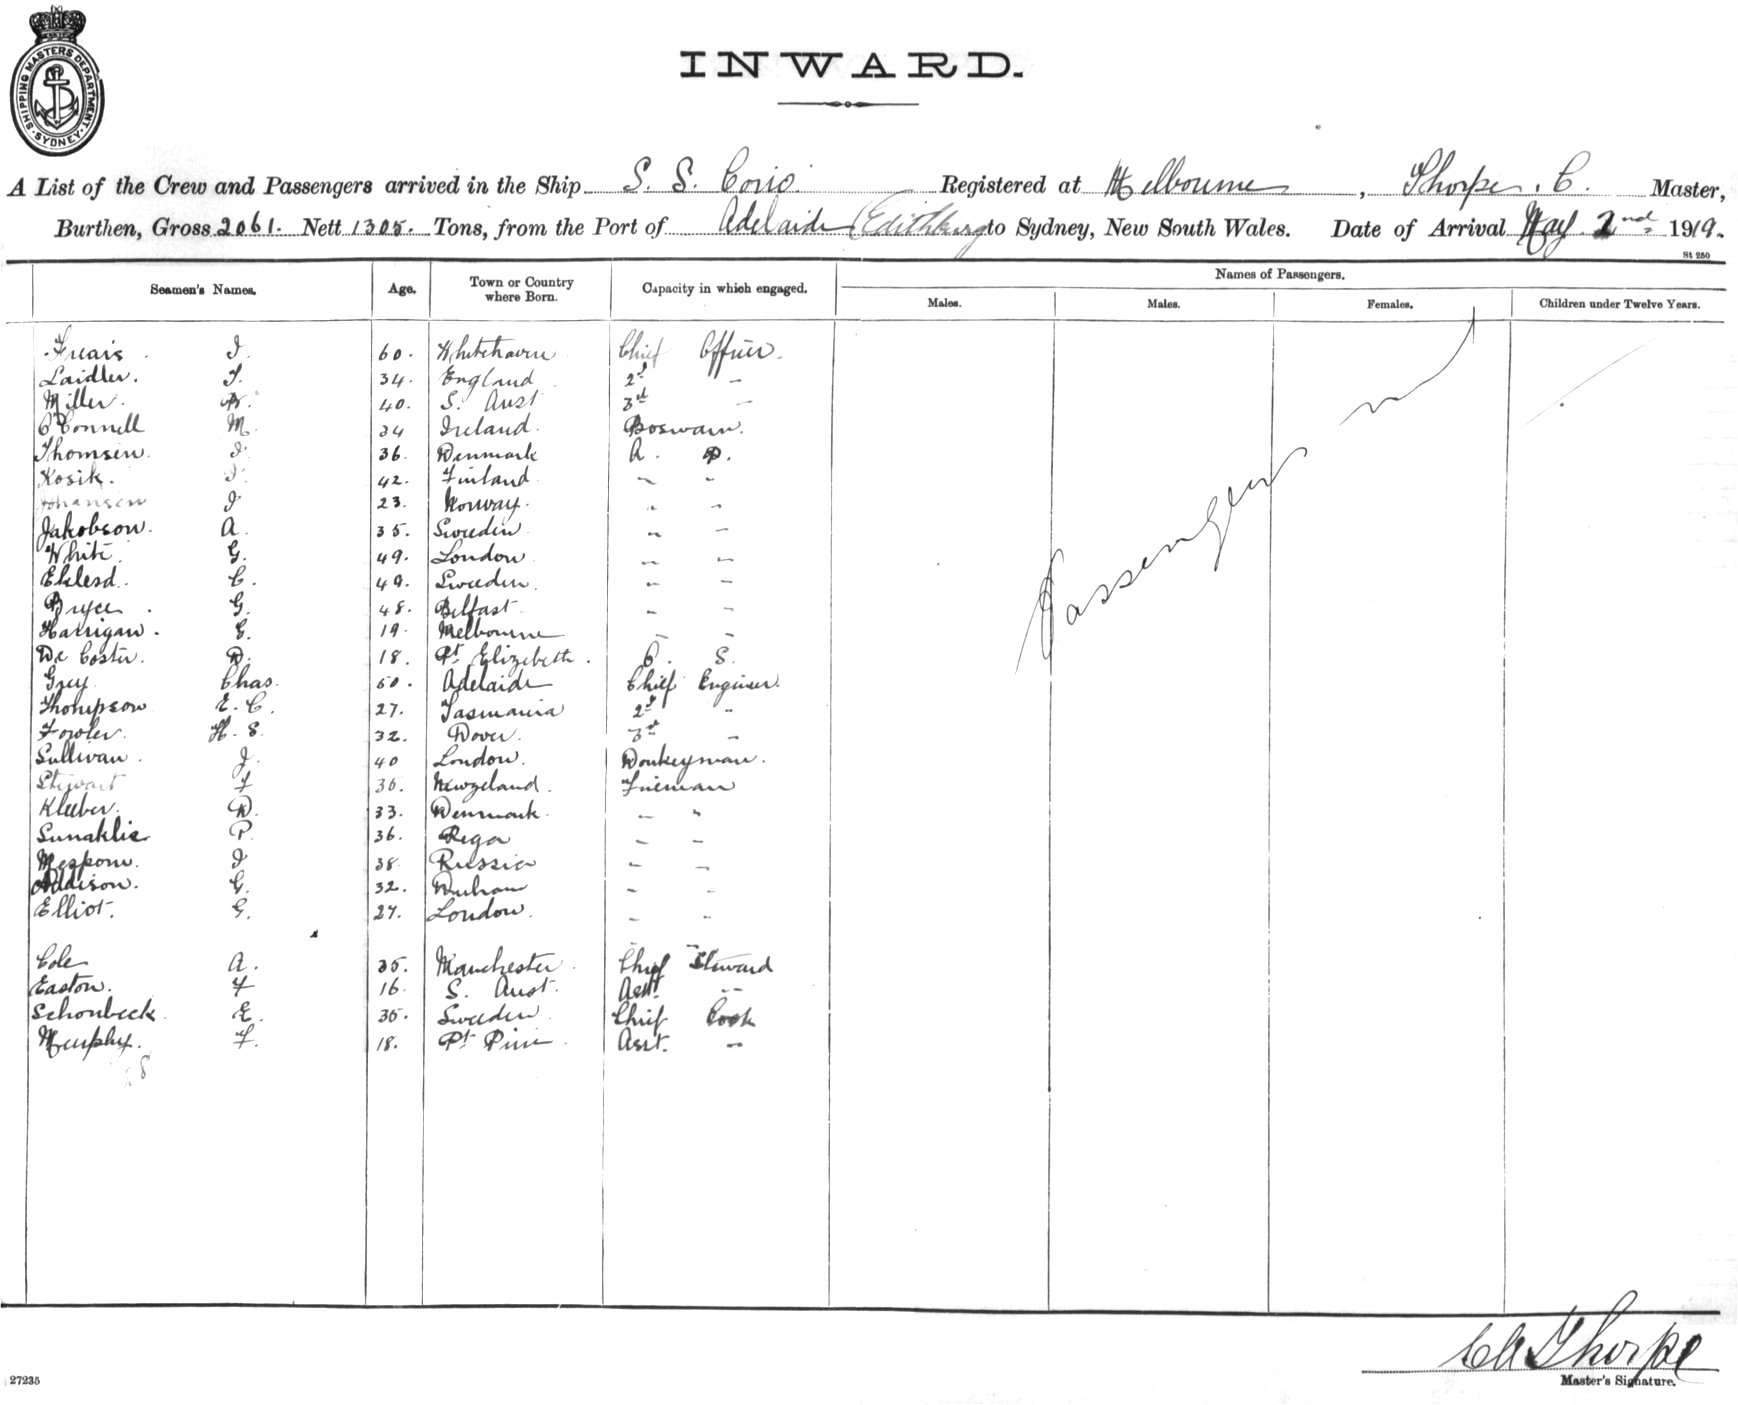 SHIPPING MASTERS DEPARTMENT. SYDNEY.
INWARD.
A List of the Crew and Passengers arrived in the Ship S. S. Corio Registered at Melbourne, Thorpe. C. Master,
Burthen, Gross 2061. Nett 1305. Tons, from the Port of Adelaide Edithburg to Sydney, New South Wales. Date of Arrival May 2nd 1919.
St 250
Seamen's Names. Age. Town or Country where Born. Capacity in which engaged. Names of Passengers.
Males. Males. Females. Children under Twelve Years.
J. 60. Whitehaven Chief Officer.
Laidler. T. 34. England 2d "
Miller. W. 40. S. Aust 3rd "
O'Connell M. 34 Ireland. Boswain.
Thomsen. J. 36. Denmark A. B.
Kosik. J. 42. Finland " "
Johansen J 23. Norway. " "
Jakobson. A. 35. Sweden " "
White. G. 49. London " "
C. 49. Sweden. " "
Bryce. G. 48. Belfast " "
Harrigan. E. 19. Melbourne " "
De Coster. D. 18. Pt Elizabeth. O. S.
Grey Chas. 50. Adelaide Chief Engineer.
Thompson E. C. 27. Tasmania 2d "
Fowler. H. S. 32. Dover. 3rd "
Sullivan. J. 40 London. Donkeyman.
Stewart F 35. Newzeland. Fireman
Kleeber. D. 33. Denmark. " "
P. 36. Rega " "
J 38. Russia " "
Addison. G. 32. Durham " "
Elliot. G. 27. London. " "
Cole A. 35. Manchester. Chief Steward
Easton. F 16. S. Aust. Asst. "
Schonbeck E. 35. Sweden. Chief Cook
Murphy. F. 18. Pt Pirie. Asst. "
28
Passengers nil
C A Thorpe
Master's Signature.
27235